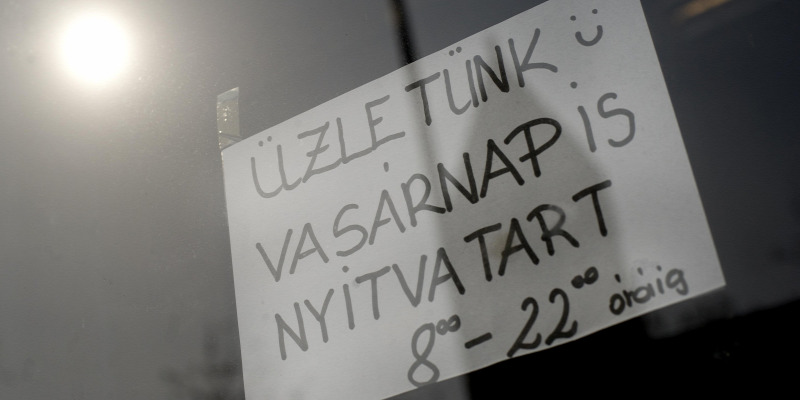 ÜZLETÜNK Ü
VASÁRNAP IS
NYITVATART
8⁰⁰ - 22⁰⁰ óráig